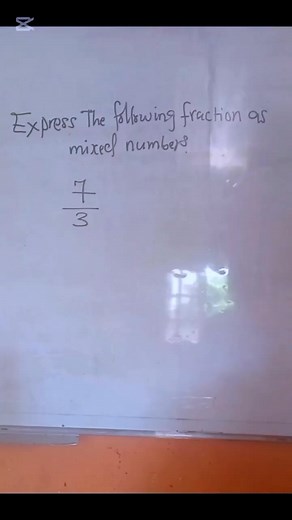 Express The following fraction as
mixed numbers.
7
3